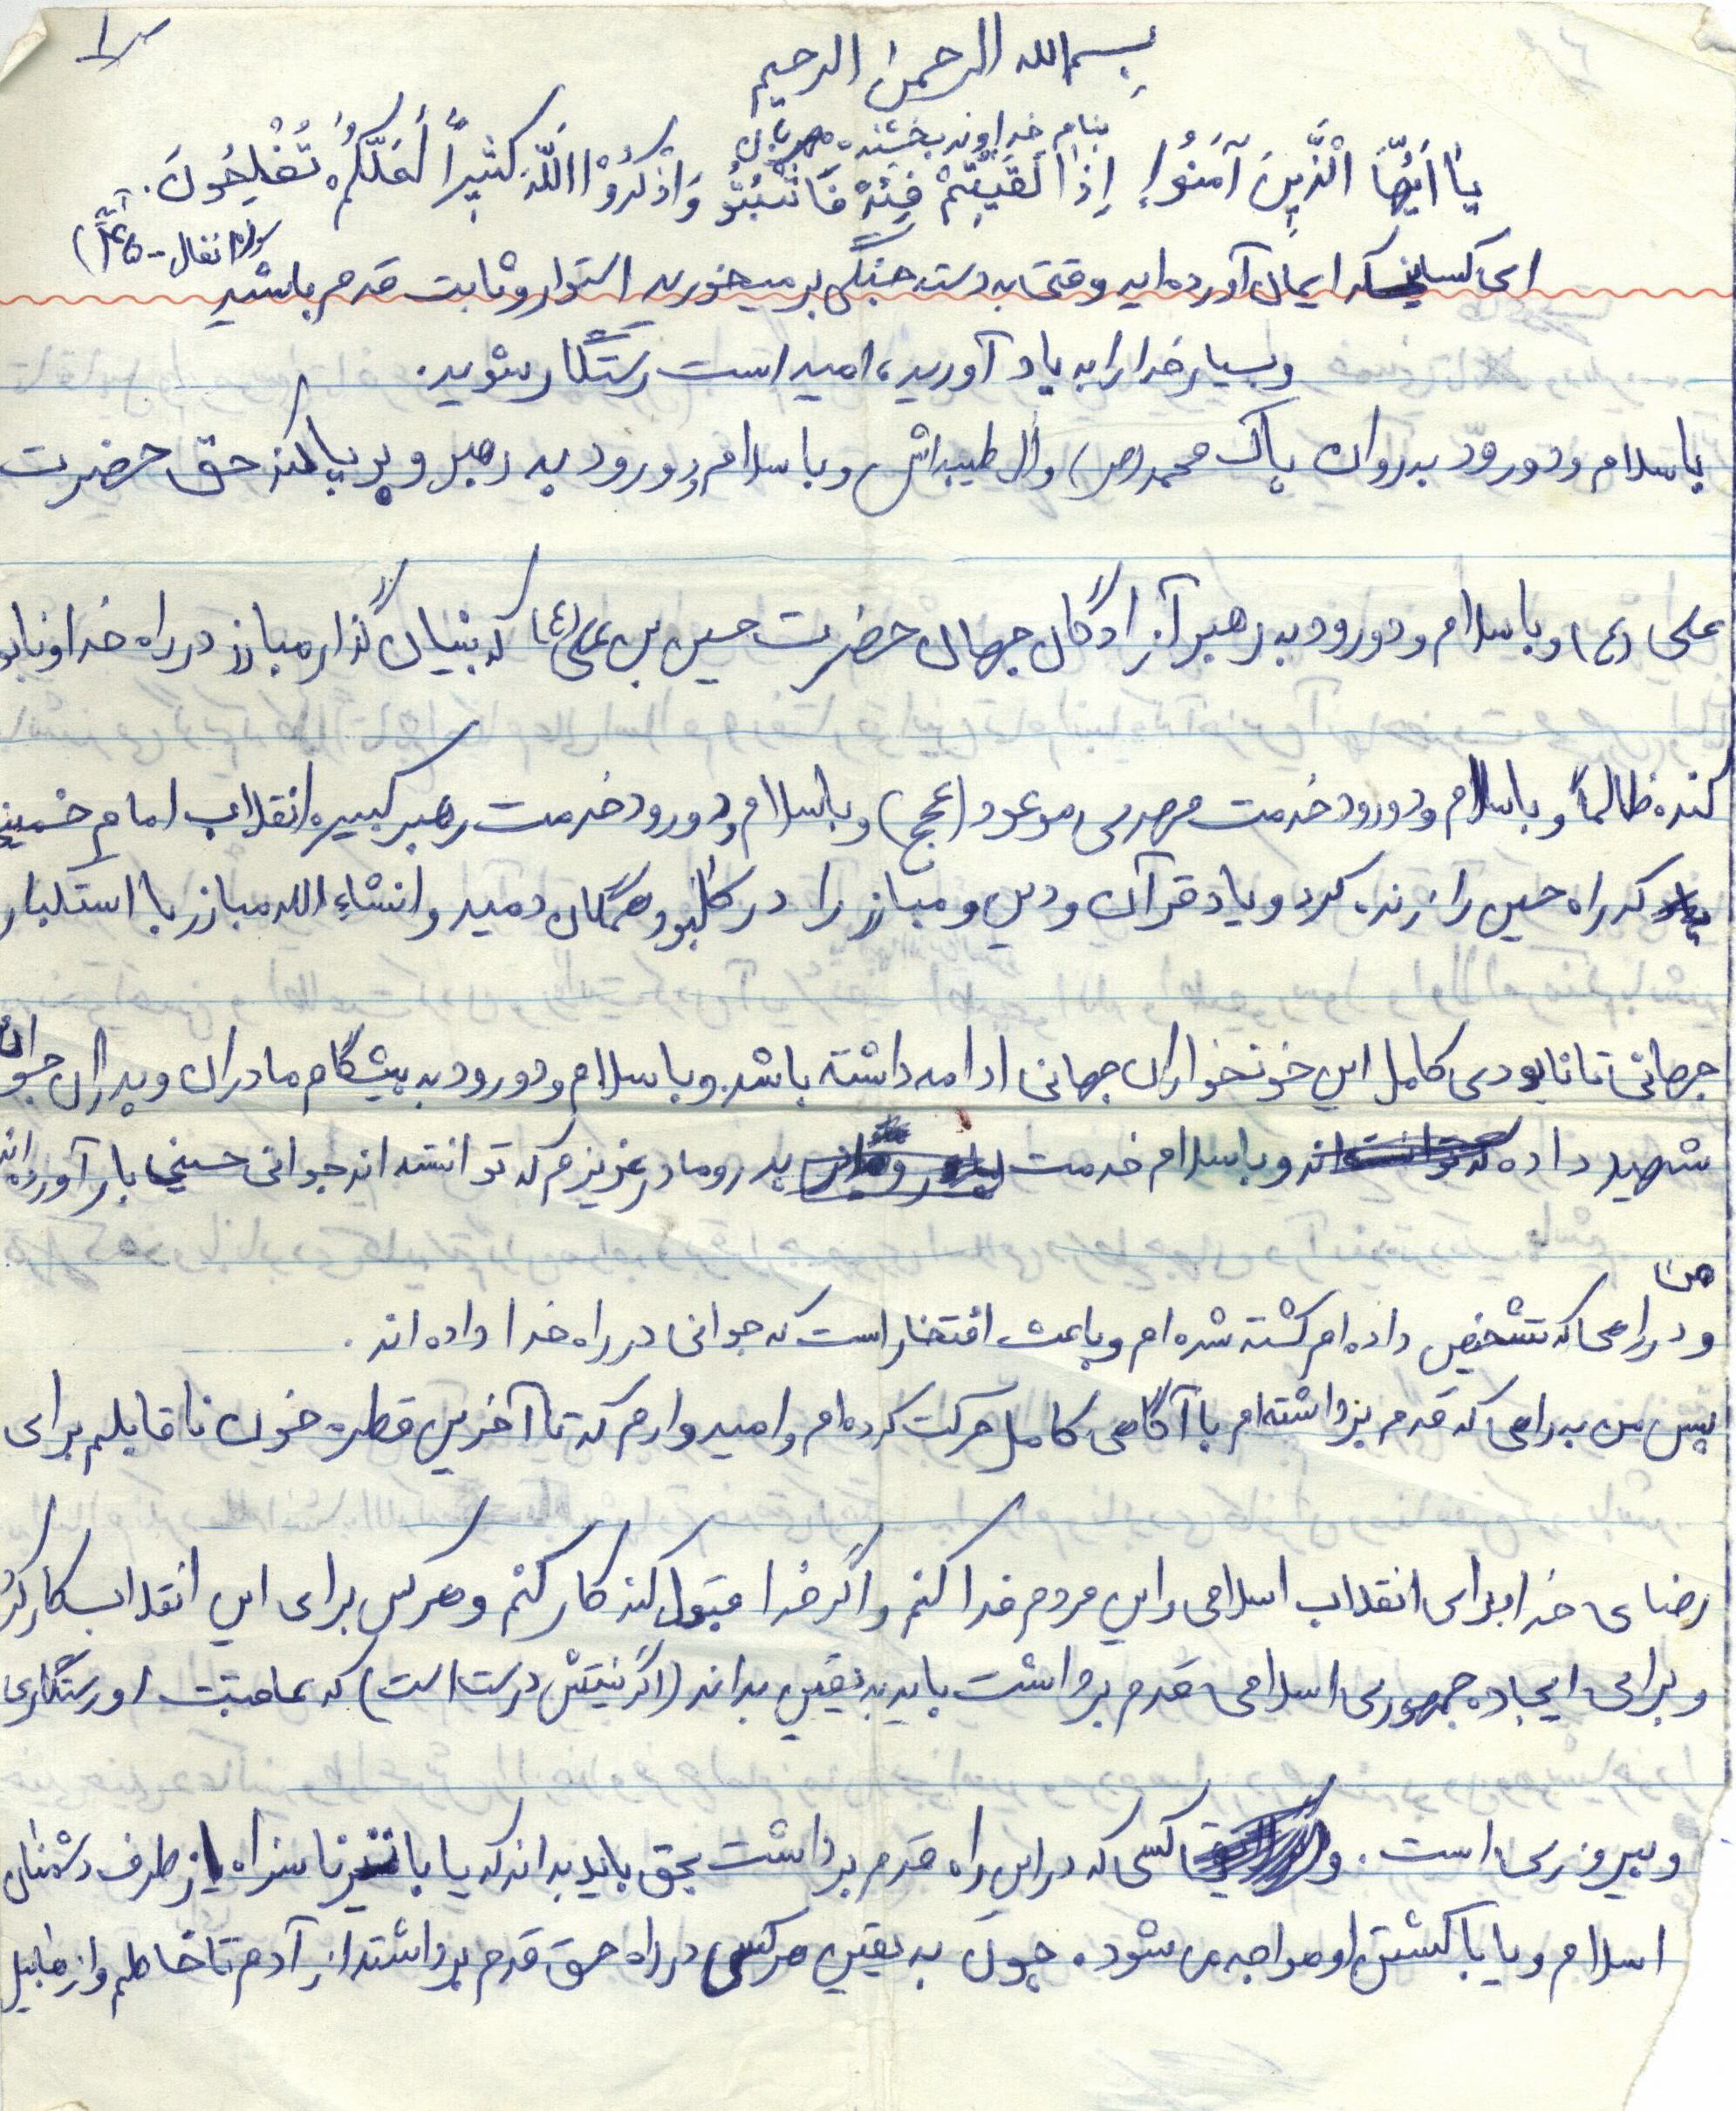 ص ۱
بسم الله الرحمن الرحیم
بنام خداوند بخشنده مهربان
یٰا اَیُّهَا الْذَّینَ آمَنُوا إِذٰا لَقَیْتِمْ فِئَهْ فَاثْبُتُوْ وَاذْکُرُوْا اللّهَ کَثیٖراً لَعَلَّکُمْ تُفْلِحُونَ.
(سوره انفال - آیه ۴۵)
ای کسانیکه ایمان آورده‌اید وقتی به دسته جنگی بر میخورید استوار و ثابت قدم باشید
و بسیار خدا را به یاد آورید، امید است رستگار شوید.
با سلام و دورود به روان پاک محمد (ص) و ال طیبه‌اش و با سلام و دورود به رهبر و بر پا کنند حق حضرت
علی (ع) و با سلام و دورود به رهبر آزادگان جهان حضرت حسین بن علی (ع) که بنیان گذار مبارز در راه خدا و نابو
کننده ظالما و با سلام و دورود خدمت مهدی موعود (عج) و با سلام و دورود خدمت رهبر کبیر انقلاب امام خمینی
که راه حسین را زنده کرد و یاد قرآن و دین و مبارز را در کالبود همگان دمید و انشاءِ الله مبارز با استکبار
جهانی تا نابودی کامل این خونخواران جهانی ادامه داشته باشد. و با سلام و دورود به پیشگام مادران و پدران جوان
شهید داده اند و با سلام خدمت پدر و مادر عزیزم که توانسته اند جوانی حسینی بار آورده‌اند
من
و در راهی که تشخیص داده ام کشته شده ام و باعث افتخار است که جوانی در راه خدا داده اند.
پس من به راهی که قدم برداشته‌ام با آگاهی کامل حرکت کرده‌ام و امیدوارم که تا آخرین قطره خون ناقابلم برای
رضای خدا برای انقلاب اسلامی و این مردم فدا کنم و اگر خدا قبول کند کار کنم و هرکس برای این انقلاب کار کند
و برای ایجاد جمهوری اسلامی قدم برداشت باید به یقین بداند (اگر نیتش درست است) که عاقبت او رستگاری
و پیروزی است. و کسی که در این راه قدم برداشت بحق باید بداند که یا با ناسزاه از طرف دشمنان
اسلام و یا با کشتن او مواجه می شود. چون به یقین هر کسی در راه حق قدم برداشته از آدم تا خاطم و از هابیل